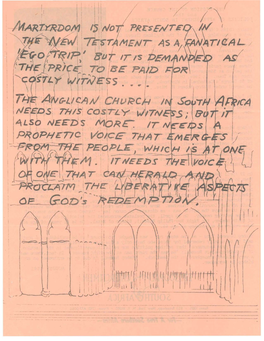 MARTYRDOM IS NOT PRESENTED IN
THE NEW TESTAMENT AS A FANATICAL
'EGO TRIP'. BUT IT IS DEMANDED AS
THE PRICE TO BE PAID FOR
COSTLY WITNESS ....
THE ANGLICAN CHURCH IN SOUTH AFRICA
NEEDS THIS COSTLY WITNESS; BUT IT
ALSO NEEDS MORE. IT NEEDS A
PROPHETIC VOICE THAT EMERGES
FROM THE PEOPLE, WHICH IS AT ONE
WITH THEM. IT NEEDS THE VOICE
OF ONE THAT CAN HERALD AND
PROCLAIM THE LIBERATIVE ASPECTS
OF GOD'S REDEMPTION.